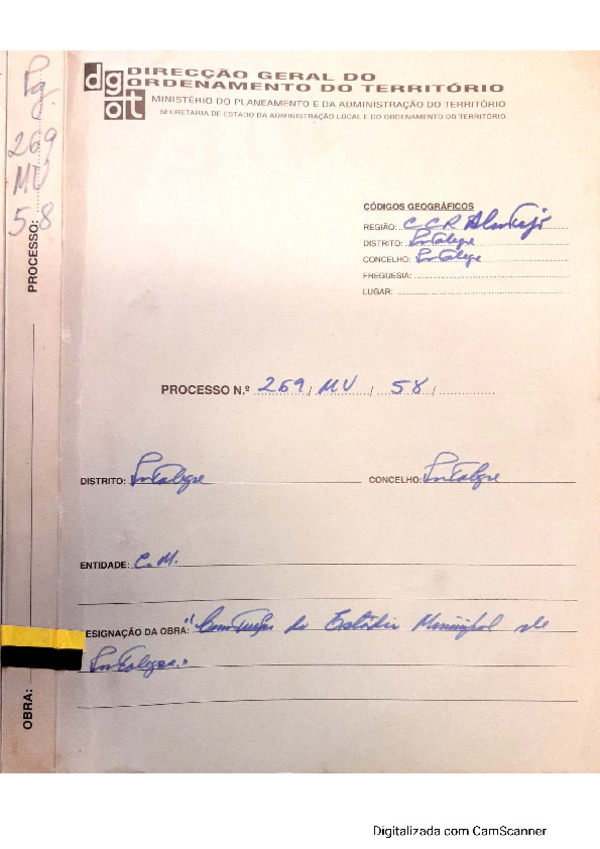 dg
ot
DIRECÇÃO GERAL DO
ORDENAMENTO DO TERRITÓRIO
MINISTÉRIO DO PLANEAMENTO E DA ADMINISTRAÇÃO DO TERRITÓRIO
SECRETARIA DE ESTADO DA ADMINISTRAÇÃO LOCAL E DO ORDENAMENTO DO TERRITÓRIO
CÓDIGOS GEOGRÁFICOS
REGIÃO: C.C.R. Alentejo
DISTRITO: Portalegre
CONCELHO: Portalegre
FREGUESIA:
LUGAR:
PROCESSO N.º 269 / MU / 58 /
DISTRITO: Portalegre CONCELHO: Portalegre
ENTIDADE: C.M.
ESIGNAÇÃO DA OBRA: "Construção do Estádio Municipal de
Portalegre.
PROCESSO: 269 MU 58
OBRA:
Digitalizada com CamScanner